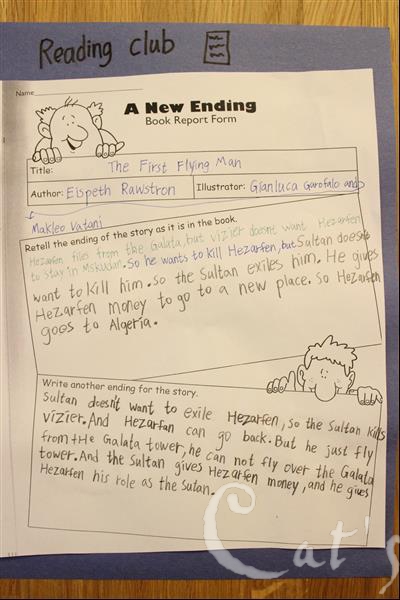 Reading club
Name
A New Ending
Book Report Form
Title: The First Flying Man
Author: Eispeth Rawstron Illustrator: Gianluca Garofalo and
Makleo Vatani
Retell the ending of the story as it is in the book.
Hezarfen flies from the Galata, but vizier doesnt want Hezarfen
to stay in Mskudan. So he wants to kill Hezarfen, but Sultan doesnt
want to kill him. So the Sultan exiles him. He gives
Hezarfen money to go to a new place. So Hezarfen
goes to Algeria.
Write another ending for the story.
Sultan doesn't want to exile Hezarfen, so the Sultan kills
vizier. And Hezarfan can go back. But he just fly
from the Galata tower, he can not fly over the Galata
tower. And the Sultan gives Hezarfen money, and he gives
Hezarfen his role as the Sutan.
Cat's